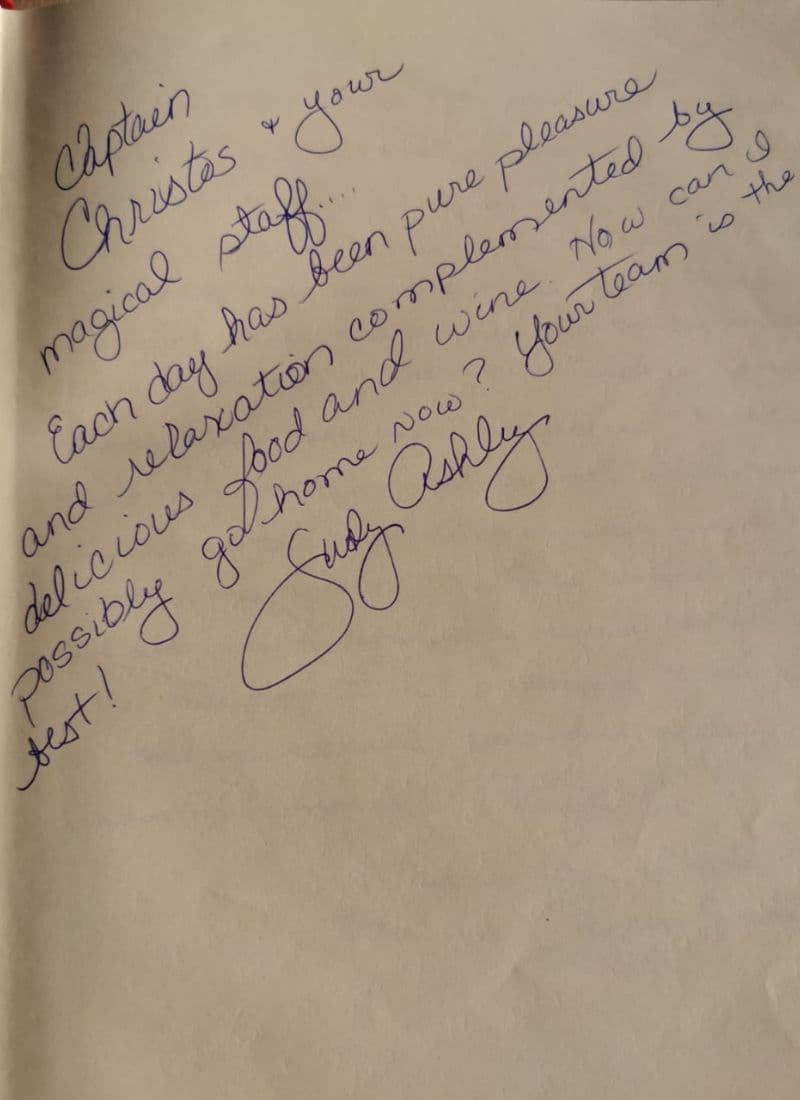 Captain
Christos & your
magical staff....
Each day has been pure pleasure
and relaxation complemented by
delicious food and wine. Now can I
possibly go home now? Your team is the
best!
Judy Ashley